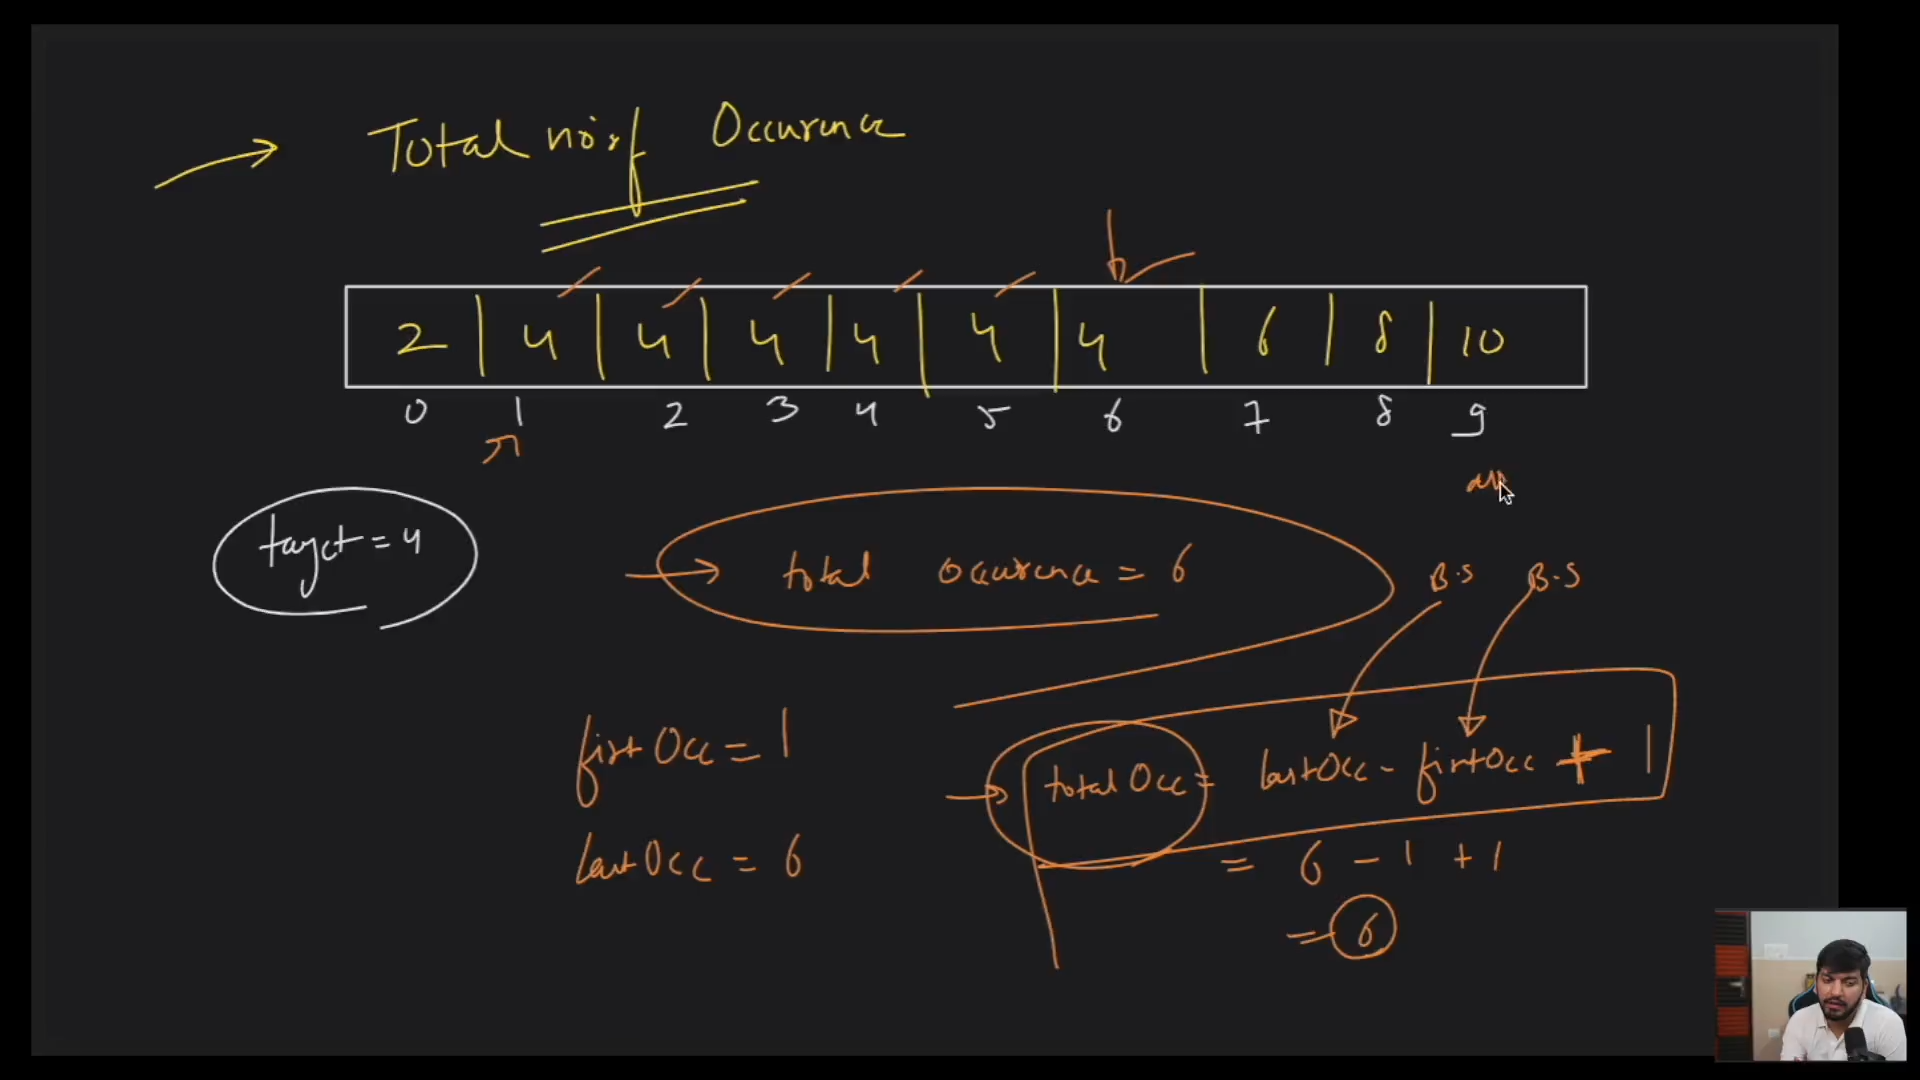 Total no. of Occurence
2 4 4 4 4 4 4 6 8 10
0 1 2 3 4 5 6 7 8 9
target = 4
total occurence = 6
B.S B.S
firstOcc = 1
totalOcc = lastOcc - firstOcc + 1
lastOcc = 6
= 6 - 1 + 1
= 6